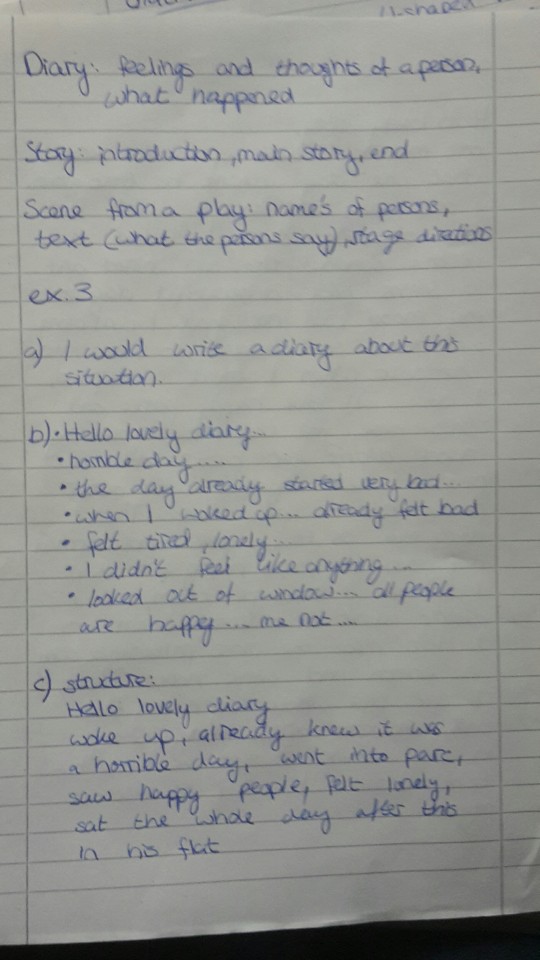 U-shaped
Diary: feelings and thoughts of a person,
what happened
Story: introduction, main story, end
Scene from a play: name's of persons,
text (what the persons say), stage directions
ex. 3
a) I would write a diary about this
situation.
b) • Hello lovely diary...
• horrible day.....
• the day already started very bad...
• when I waked up... already felt bad
• felt tired, lonely...
• I didn't feel like anything...
• looked out of window... all people
are happy.... me not...
c) structure:
Hello lovely diary
woke up, already knew it was
a horrible day, went into parc,
saw happy people, felt lonely,
sat the whole day after this
in his flat